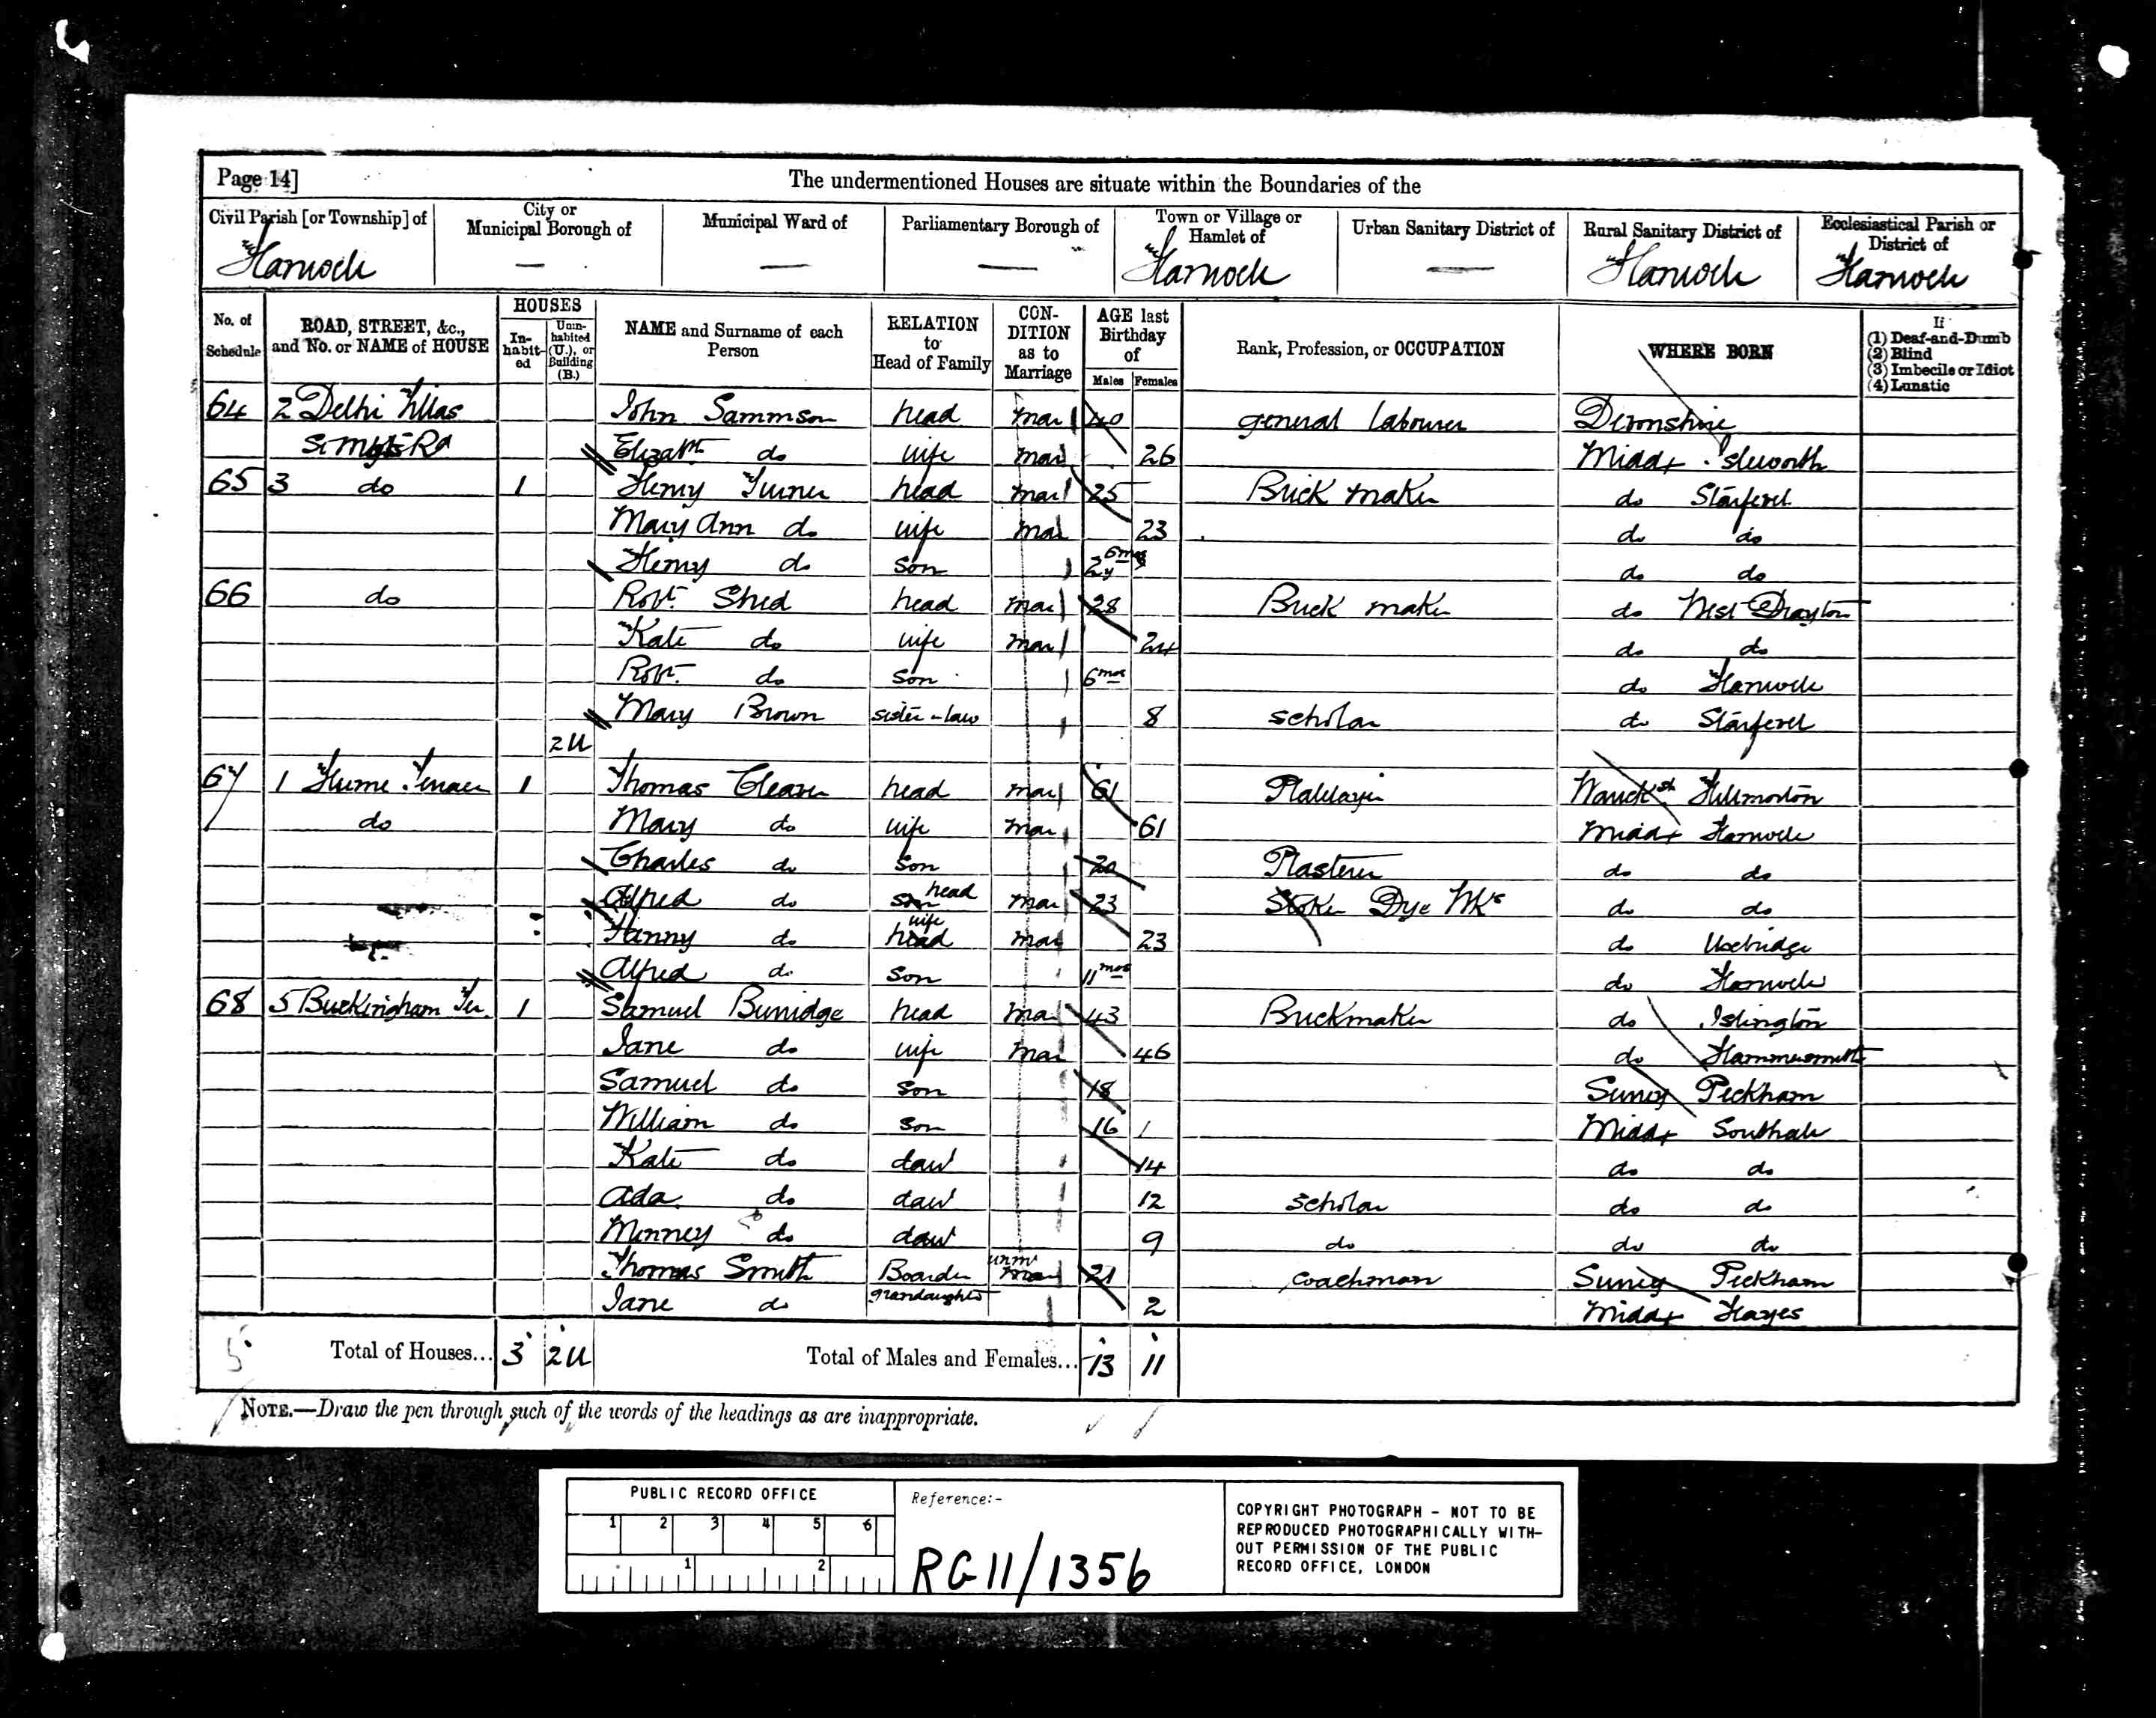 Page 14]
The undermentioned Houses are situate within the Boundaries of the
Civil Parish [or Township] of
City or Municipal Borough of
Municipal Ward of
Parliamentary Borough of
Town or Village or Hamlet of
Urban Sanitary District of
Rural Sanitary District of
Ecclesiastical Parish or District of
Hanwell — — — Hanwell — Hanwell Hanwell
No. of Schedule
ROAD, STREET, &c., and No. or NAME of HOUSE
HOUSES
In-habit-ed
Unin-habited (U.), or Building (B.)
NAME and Surname of each Person
RELATION to Head of Family
CON-DITION as to Marriage
AGE last Birthday of
Males Females
Rank, Profession, or OCCUPATION
WHERE BORN
If
(1) Deaf-and-Dumb
(2) Blind
(3) Imbecile or Idiot
(4) Lunatic
64 2 Delhi Villas John Sammson head mar 40 general labourer Devonshire
Elizabth do wife mar 26 Middx Isleworth
65 3 do 1 Henry Turner head mar 25 Brick maker do
Mary Ann do wife mar 23 do do
Henry do son 2y 6mos do do
66 do Robt Shed head mar 28 Brick maker do West Drayton
Kate do wife mar 24 do do
Robt do son 6mos do Hanwell
Mary Brown sister-law 8 scholar do
2U
67 1 Hume Terrace 1 Thomas Cleaver head mar 61 Platelayer Hillmorton
do Mary do wife mar 61 Middx Hanwell
Charles do son 20 Plasterer do do
Alfred do son head mar 23 Stoker Dye Wks do do
Fanny do head wife mar 23 do Uxbridge
Alfred do son 11mos do Hanwell
68 5 Buckingham Ter. 1 Samuel Burridge head mar 43 Brickmaker do Islington
Jane do wife mar 46 do Hammersmith
Samuel do son 18 Surrey Peckham
William do son 16 Middx Southall
Kate do daur 14 do do
Ada do daur 12 scholar do do
Minney do daur 9 do do do
Thomas Smith Boarder unm mar 21 coachman Surrey Peckham
Jane do grandaughter 2 Middx Hayes
Total of Houses... 3 2U Total of Males and Females... 13 11
NOTE.—Draw the pen through such of the words of the headings as are inappropriate.
PUBLIC RECORD OFFICE
1 2 3 4 5 6
1 2
Reference:-
RG 11/1356
COPYRIGHT PHOTOGRAPH - NOT TO BE
REPRODUCED PHOTOGRAPHICALLY WITH-
OUT PERMISSION OF THE PUBLIC
RECORD OFFICE, LONDON